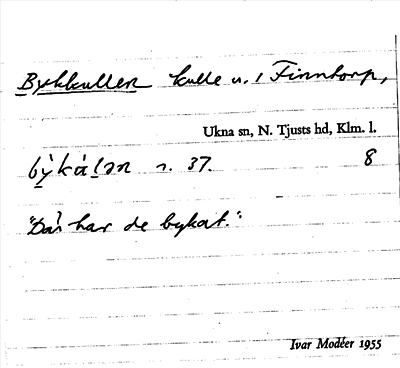 Bykkullen kulle n. i Finntorp,
Ukna sn, N. Tjusts hd, Klm. l.
by̍kàlən n. 37. 8
"Där har de bykat."
Ivar Modéer 1955